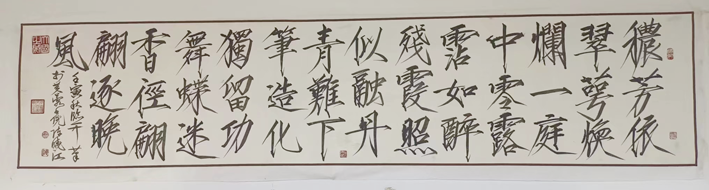 穠芳依
翠萼煥
爛一庭
中零露
霑如醉
殘霞照
似融丹
青難下
筆造化
獨留功
舞蝶迷
香徑翩
翩逐晚
風
壬寅秋臨